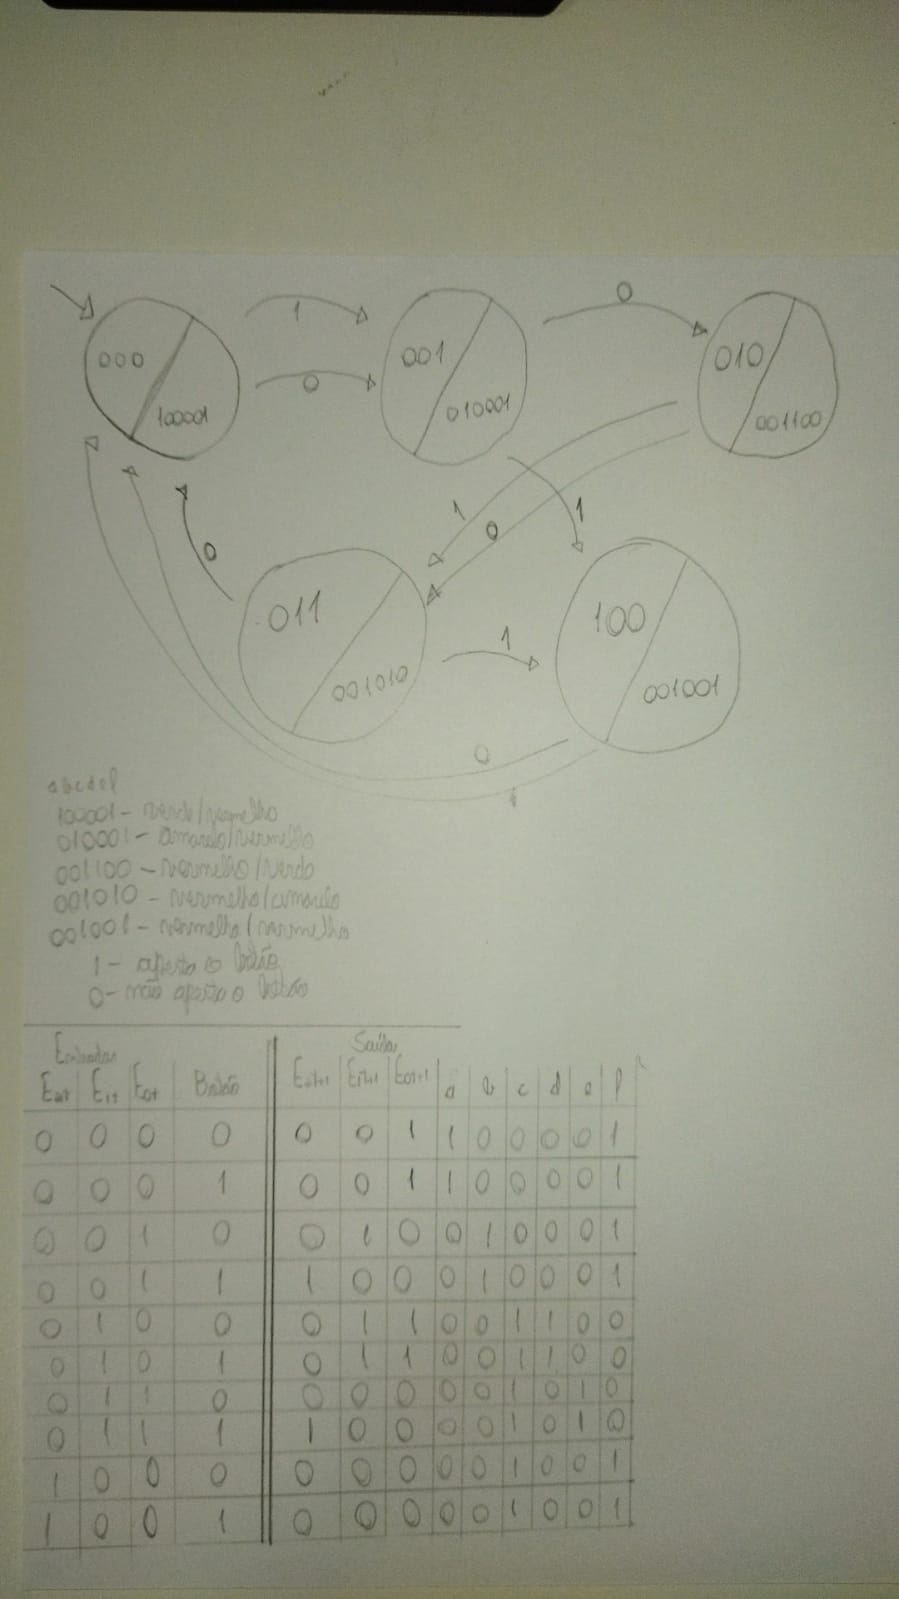 000
100001
1
0
001
010001
0
010
001100
1
0
1
0
011
001010
1
100
001001
0
1
abcdef
100001 - verde/vermelho
010001 - amarelo/vermelho
001100 - vermelho/verde
001010 - vermelho/amarelo
001001 - vermelho/vermelho
1 - aperta o botão
0 - não aperta o botão
Entradas Saídas
E2t E1t E0t Botão E2t+1 E1t+1 E0t+1 a b c d e f
0 0 0 0 0 0 1 1 0 0 0 0 1
0 0 0 1 0 0 1 1 0 0 0 0 1
0 0 1 0 0 1 0 0 1 0 0 0 1
0 0 1 1 1 0 0 0 1 0 0 0 1
0 1 0 0 0 1 1 0 0 1 1 0 0
0 1 0 1 0 1 1 0 0 1 1 0 0
0 1 1 0 0 0 0 0 0 1 0 1 0
0 1 1 1 1 0 0 0 0 1 0 1 0
1 0 0 0 0 0 0 0 0 1 0 0 1
1 0 0 1 0 0 0 0 0 1 0 0 1